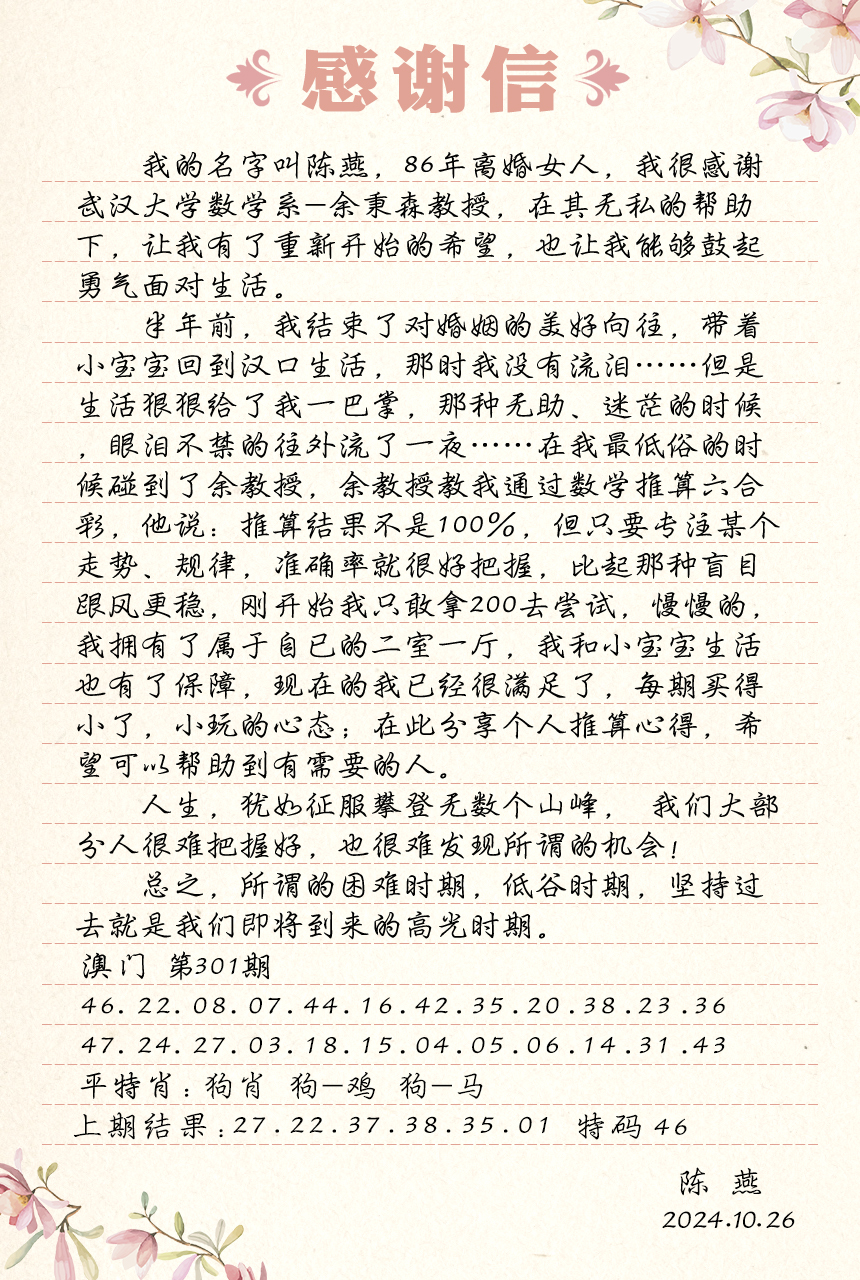 感谢信
我的名字叫陈燕，86年离婚女人，我很感谢
武汉大学数学系—余秉森教授，在其无私的帮助
下，让我有了重新开始的希望，也让我能够鼓起
勇气面对生活。
半年前，我结束了对婚姻的美好向往，带着
小宝宝回到汉口生活，那时我没有流泪……但是
生活狠狠给了我一巴掌，那种无助、迷茫的时候
，眼泪不禁的往外流了一夜……在我最低俗的时
候碰到了余教授，余教授教我通过数学推算六合
彩，他说：推算结果不是100%，但只要专注某个
走势、规律，准确率就很好把握，比起那种盲目
跟风更稳，刚开始我只敢拿200去尝试，慢慢的，
我拥有了属于自已的二室一厅，我和小宝宝生活
也有了保障，现在的我已经很满足了，每期买得
小了，小玩的心态；在此分享个人推算心得，希
望可以帮助到有需要的人。
人生，犹如征服攀登无数个山峰， 我们大部
分人很难把握好，也很难发现所谓的机会！
总之，所谓的困难时期，低谷时期，坚持过
去就是我们即将到来的高光时期。
澳门 第301期
46.22.08.07.44.16.42.35.20.38.23.36
47.24.27.03.18.15.04.05.06.14.31.43
平特肖：狗肖 狗—鸡 狗—马
上期结果：27.22.37.38.35.01 特码 46
陈 燕
2024.10.26